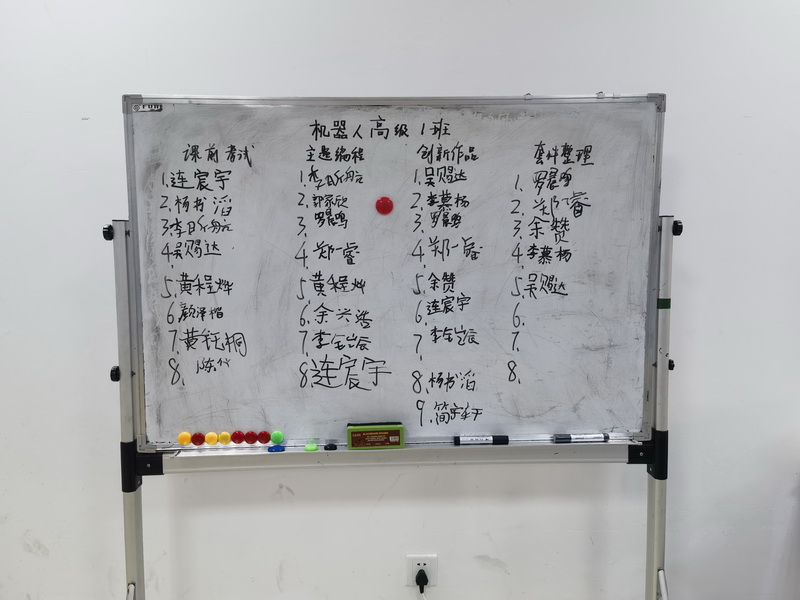 机器人高级1班
课前考试
1.连宸宇
2.杨书滔
3.李日
4.吴赐达
5.黄程烨
6.颜泽楷
7.黄钰桐
8.陈
主题编程
1.李日
2.郭家欣
3.罗晨鸣
4.郑一睿
5.黄程烨
6.余兴浩
7.李全岩辰
8.连宸宇
创新作品
1.吴赐达
2.李慕杨
3.罗晨鸣
4.郑一睿
5.余赞
6.连宸宇
7.李全岩辰
8.杨书滔
9.简
套件整理
1.罗晨鸣
2.郑一睿
3.余赞
4.李慕杨
5.吴赐达
6.
7.
8.